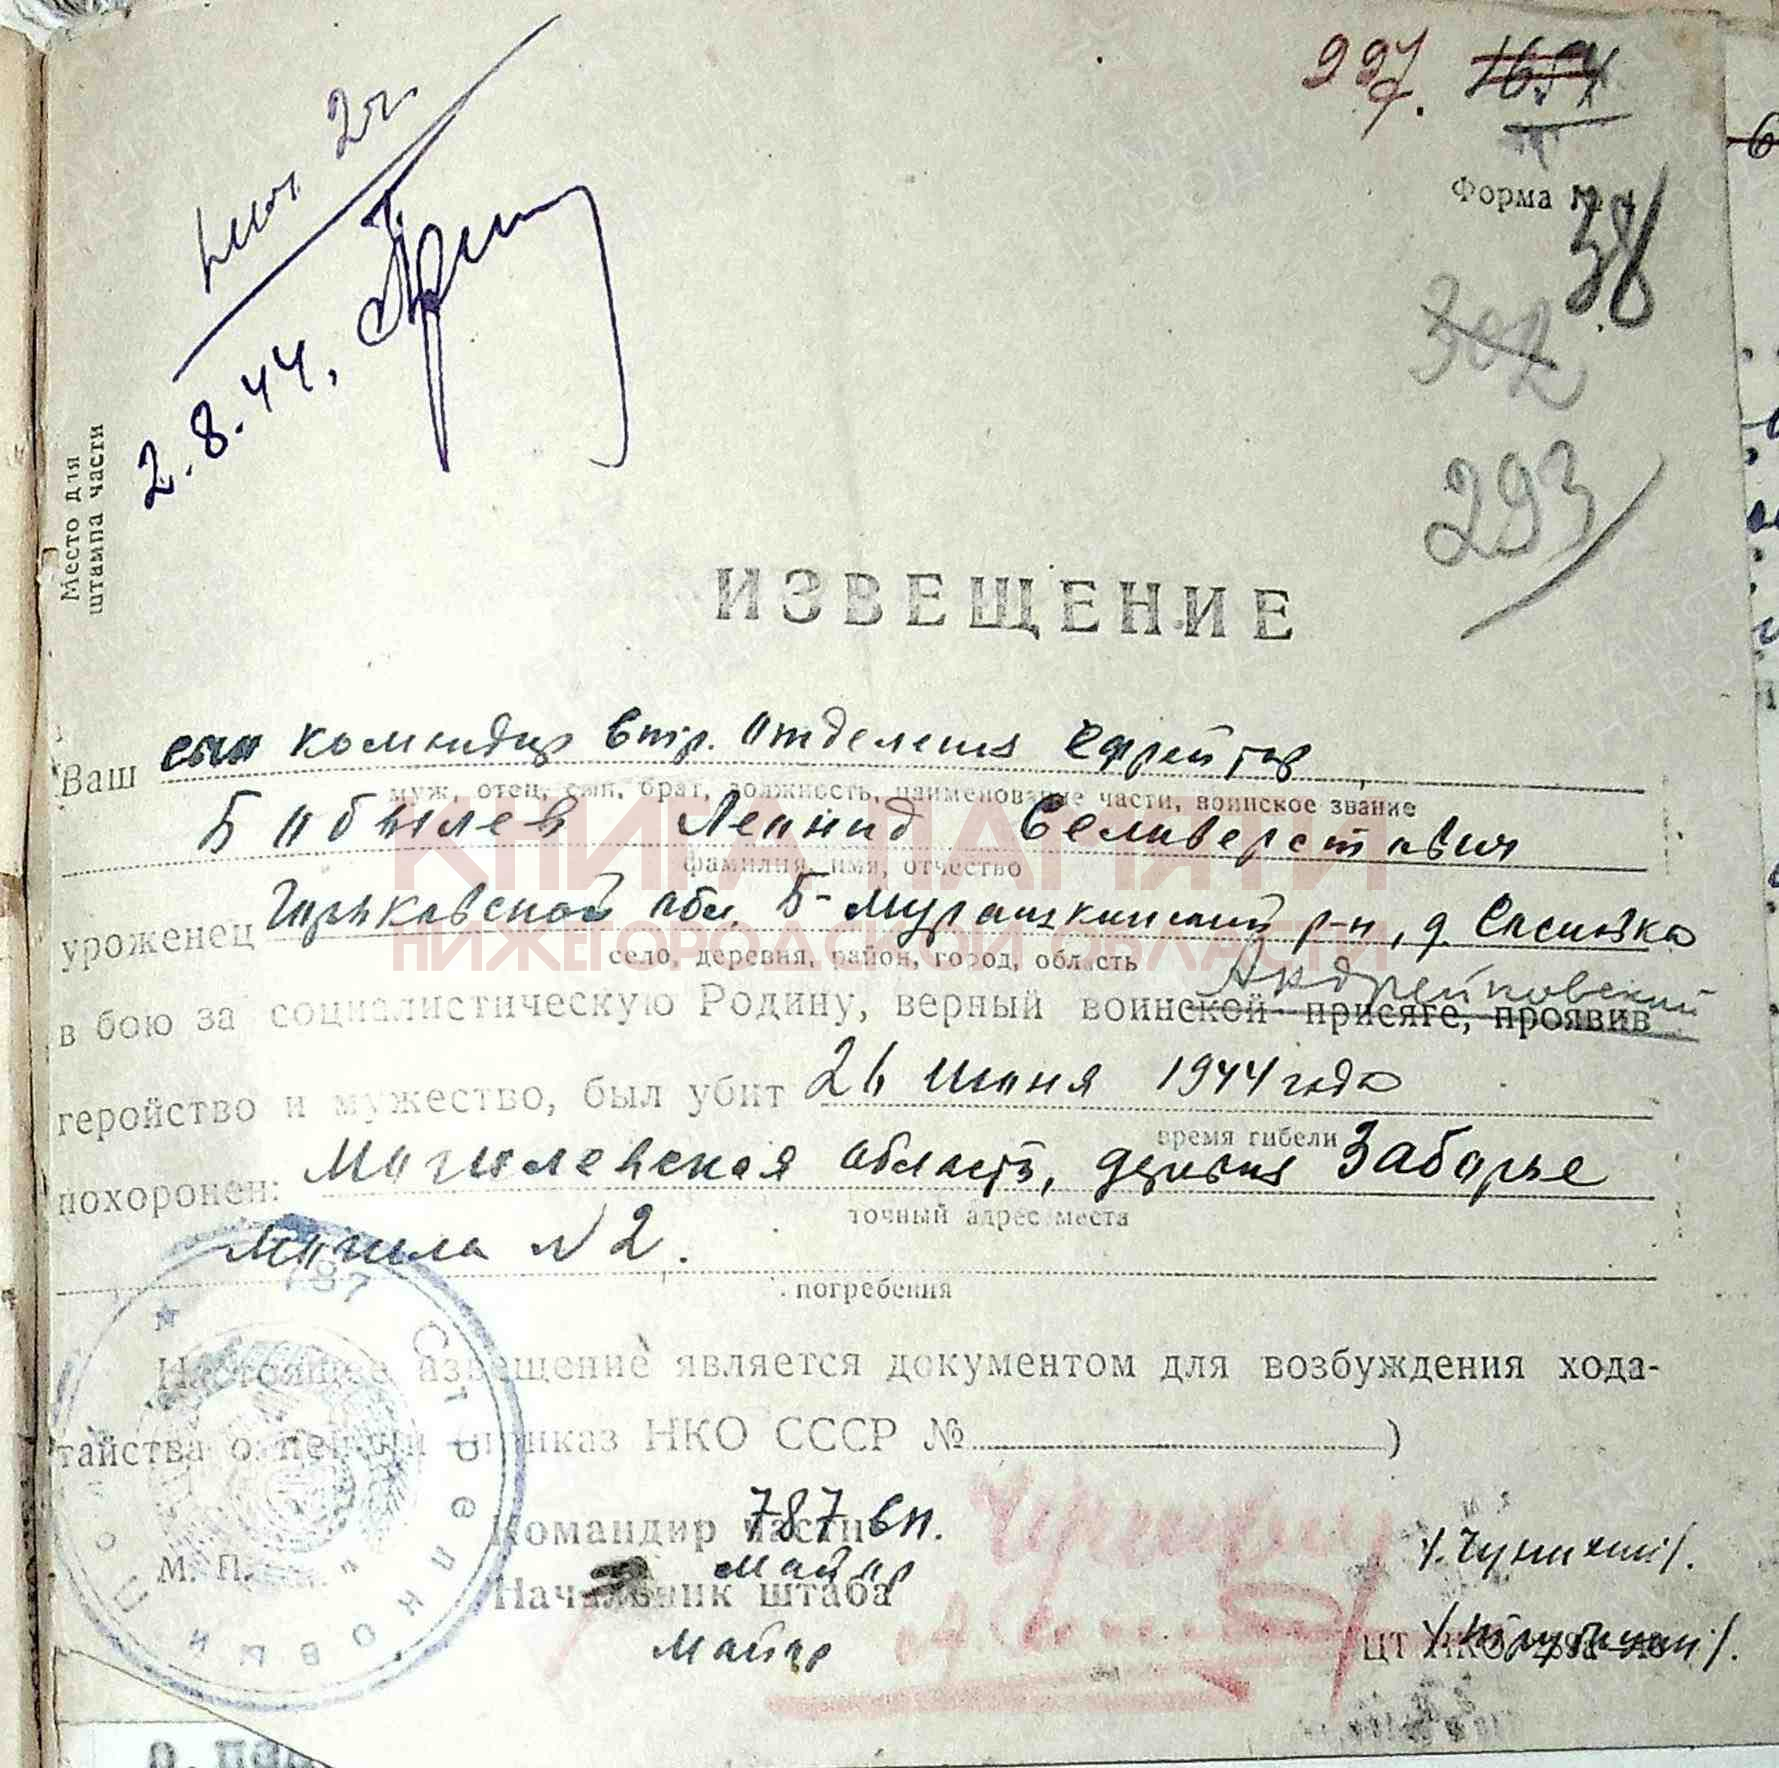 997
1654
Форма № 4
38
302
293
2.8.44.
Место для
штампа части
ИЗВЕЩЕНИЕ
Ваш сын командир стр. отделения ефрейтор
муж, отец, сын, брат, должность, наименование части, воинское звание
Бобылев Леонид Селиверстович
фамилия, имя, отчество
КНИГА ПАМЯТИ
НИЖЕГОРОДСКОЙ ОБЛАСТИ
уроженец Горьковской обл. Б-Мурашкинский р-н, д. Сосновка
село, деревня, район, город, область
Андрейковский
в бою за социалистическую Родину, верный воинской присяге, проявив
геройство и мужество, был убит 26 июня 1944 года
время гибели
похоронен: Могилевская область, деревня Заборье
точный адрес места
могила № 2.
погребения
Настоящее извещение является документом для возбуждения хода-
тайства о пенсии (приказ НКО СССР № )
Командир части 787 сп.
майор
М. П.
Начальник штаба
майор
787 Стрелковый полк
ЦТ НКО